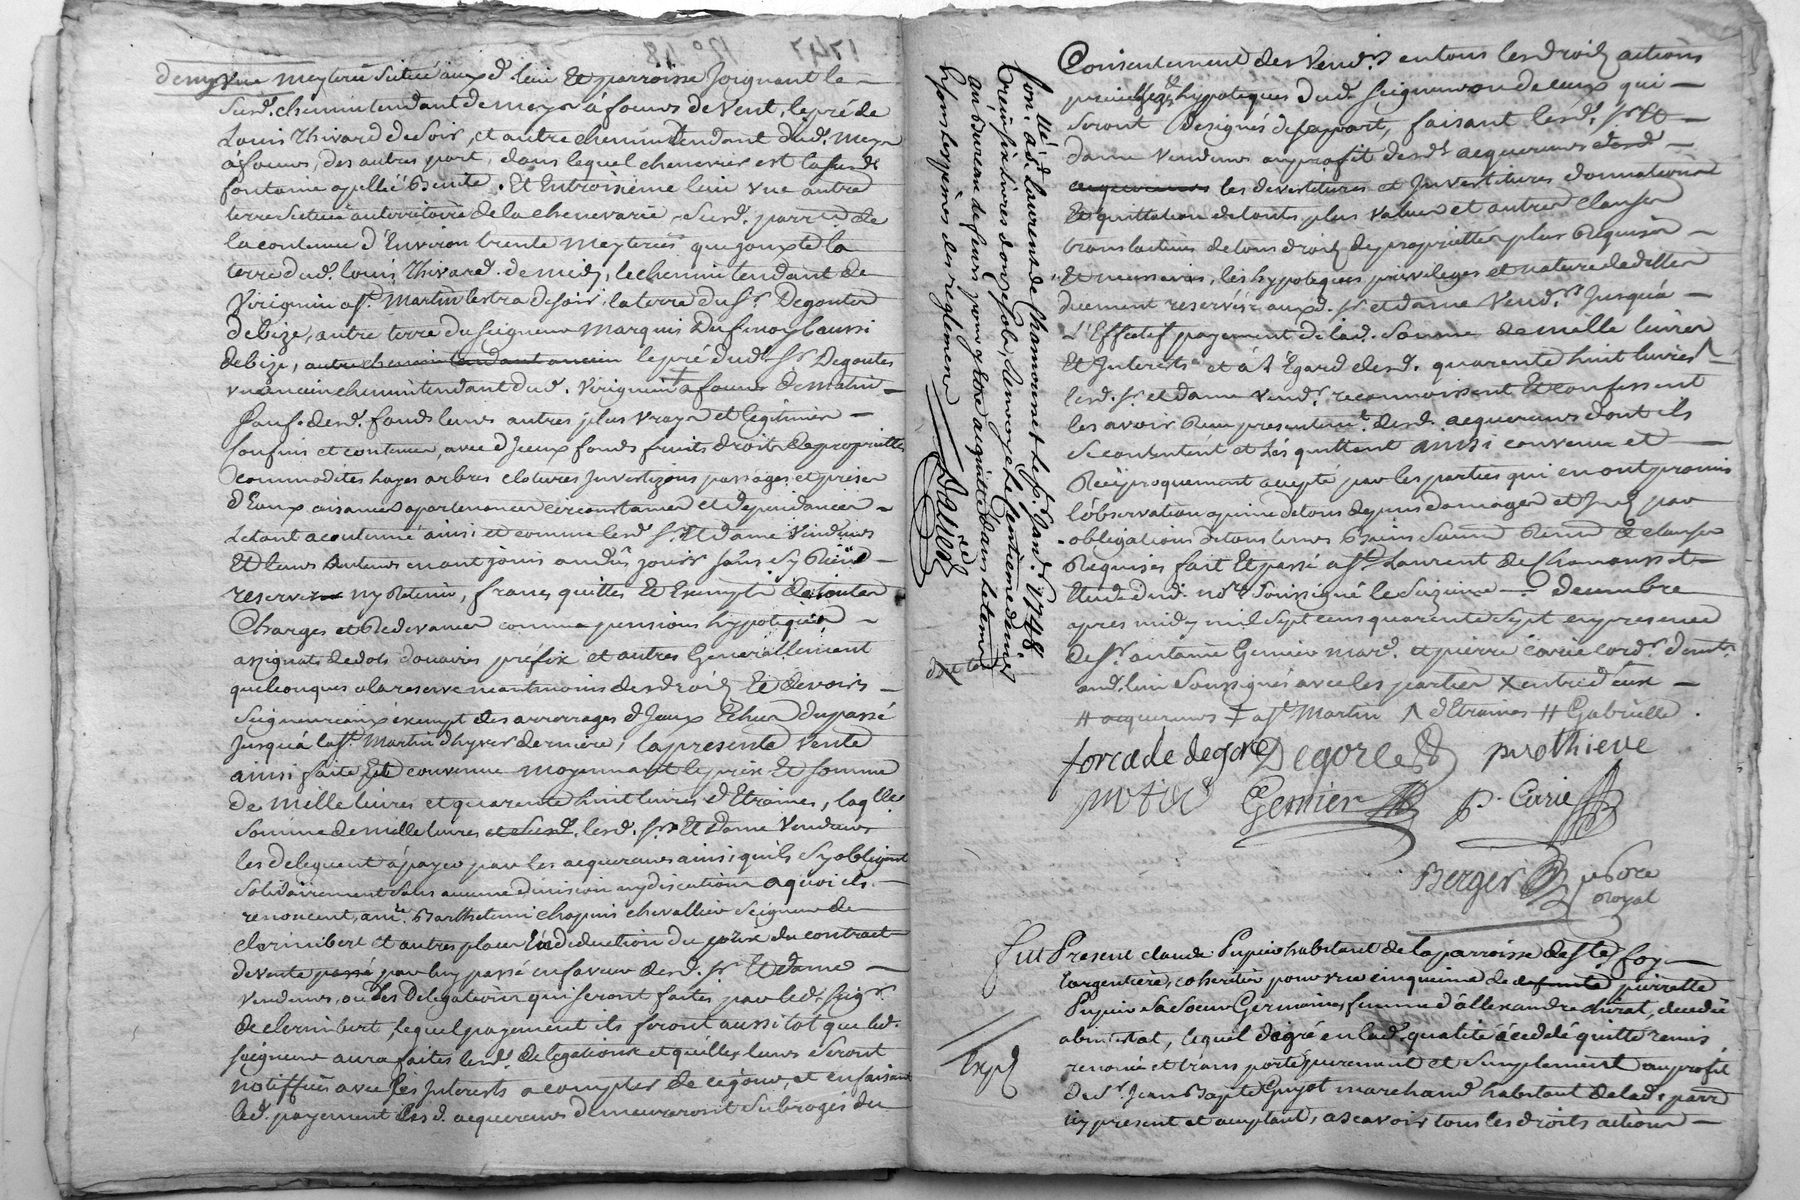 demy vne meyterée située auxd. lieu et parroisse joignant le
susd. chemin tendant de meys à foeurs de vent, le pré de
Louis Thivard de soir, et autre chemin tendant dud. meys
à foeurs, des autres part, dans lequel chenevier est la susd.
fontaine apellée. Et entroisieme lieu vne autre
terre située au territoire de la chenevarie, susd. parroisse de
la contenue d'Environ trente meyterées que jouxte la
terre dud. louis Thivard. de midy, le chemin tendant de
Virignieu a St. Martin lestra de soir, la terre du Sr. Degoutes
de bize, autre terre du seigneur marquis aussi
de bize, autre chemin tendant ancien le pré dud. Sr. Degoutes
vn ancien chemin tendant dud. Virignieu ‡ a foeurs de matin
sauf. desd. fonds leurs autres plus vrays et legitimes
confins et contenues, avec d'Jceux fonds fruits droits de proprietté
commodités hayes arbres clotures passages et prises
d'Eaux aisances apartenances circonstances et dependances
Letout acoutumé ainsi et comme lesd. Sr. et dame vendeurs
Et leurs auteurs en ont jouis ou dû jouir sans sy Rien
reserver ny Retenir, francs quittes Et Exempts de toutes
Charges et Redevances comme pensions hypoteques
assignats de dots douaires préfix et autres Generallement
quelconques a la reserve neantmoins des droits Et devoirs
Seigneuriaux exempt des arrerages d'Jceux Echus du passé
jusqu'à la St. Martin d'hyver derniere, la presente vente
ainsi faite Et convenue moyennant le prix Et somme
de mille livres et quarente huit livres d'Etraines, laqlle
somme de mille livres et susd. lesd. Sr. Et dame Vendeurs
les deleguent à payer par les acquereurs ainsi quils sy obligent
solidairement sans aucune division ny discution a quoi ils
renoncent, a mre. Barthelemi chapuis chevallier seigneur de
clerimbert et autres places En deduction du prix du contract
de vente passé par luy passé en faveur desd. Sr. Et dame
vendeurs, ou des Delegations qui seront faites par led. seigr.
de clerimbert, lequel payement ils feront aussitot que led.
seigneur aura faites lesd. delegations et quelles leurs seront
notiffiées avec les Interests a compter de ce jour, et en faisant
led. payement lesd. acquereurs demeureront subrogés du
Consentement des Vendrs. en tous les droits actions
privileges hypoteques dud. seigneur ou de ceux qui
seront designés de sa part, faisant lesd. Sr. Et
dame vendeurs au profit desd. acquereurs desd.
acquereurs les devestitures et Jnvestitures donnations
Et quittation de touts plus values et autres clauses
translatives de tous droits de proprietté plus Requises
Et necessaires, les hypoteques privileges et nature de dette
duement reservés auxd. Sr. et dame Vendrs. jusqu'à
L'Effectif payement de lad. somme de mille livres
Et Jnterests et à l'Egard desd. quarente huit livres ^
lesd. Sr. et dame vendrs. reconnoissent Et confessent
les avoir Reçu presentemt. desd. acquereurs dont ils
se contentent et les quittent ainsi convenu et
Reciproquement accepté par les parties qui en ont promis
l'observation a peine de tous depens domages et Jnts. par
obligations de tous leurs Biens soumis Renon. & clauses
Requises fait Et passé a St. Laurent de Chamousset
Etude dud. nore. soussigné le seizieme Decembre
après midy mil sept cens quarente sept en presence
de Sr. antoine Genier mard. et pierre Cirie cordr. demts.
aud. lieu soussignés avec les parties X entre d'eux
# acquereurs ‡ a St. Martin ^ d'Etraines # Gabrielle.
forcade degorce Degorce PuroThieve
Genier P. Cirie
Berger nore
Royal
Con. lé à St. laurent de Chamousset le Janr. 1748.
treize livres douze sols, Renvoyé le Centieme denier
au bureau de feurs pour y Etre acquitté dans le tems
Et sous les peines des reglemens
dud. la
Fut Present claude Pupier habitant de la parroisse de Ste foy
L'argentiere, coheritier pour vne cinquieme de defunte pierrette
Pupier sa soeur Germaine, femme d'allexandre durat, decedée
abintestat, lequel de gré en lad. qualité à cedé quitté remis
renoncé et transporté purement et simplement au profit
de Sr. Jean Bapte Guyot marchand habitant de lad. parre.
icy present et aceptant, a scavoir tous les droits actions
Expd